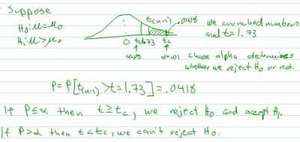 Suppose
H₀: μ=μ₀
H₁: μ>μ₀
t(n-1) .0418
we crunched numbers
and t=1.73
0 1.73 tc
chose alpha determines
whether we reject H₀ or not.
P=P[t(n-1)>t=1.73]=.0418
If P≤α then t≥tc, we reject H₀ and accept H₁.
If P>α then t<tc, we can't reject H₀.